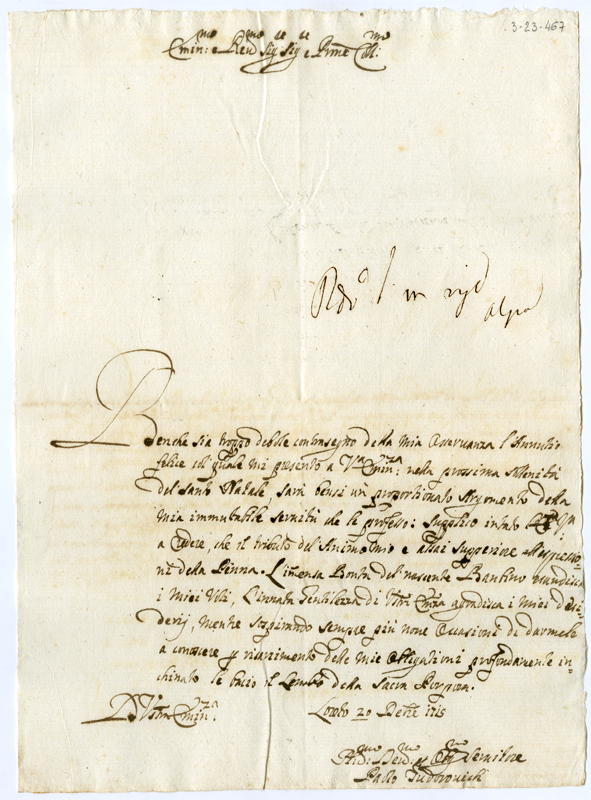 3-23-467
Emin:mo e Rev:mo Sig:re Sig:re e Prne Coll:mo
Benche sia troppo debile contrasegno della mia Osservanza l'Annutio
felice col quale mi presento a V:ra Emin:za nella prossima solenità
del santo Natale, sarà bensi un proportionato Argomento della
mia immutabile servitù che le professo: supplico intato
a credere, che il tributo del Animo mio è assai superiore all'espressio-
ni della Penna. L'imensa Bontà del nascente Bambino esaudisca
i miei Voti, l'innata Gentilezza di V:ra Em:za agradisca i miei desi-
derij, mentre sospirando sempre più nove Occasioni di darmele
a conoscere p risarcimento delle mie Obligationi profondamente in-
chinato le bacio il Lembo della Sacra Porpora.
D V:ra Emin:za
20 Dcbre 1715
Dev:mo Obl:mo Servitore